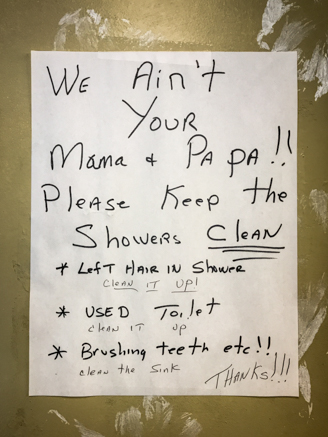 We Ain't
Your
Mama & Papa!!
Please Keep the
Showers Clean
* Left Hair in Shower
Clean it up!
* Used Toilet
clean it up
* Brushing teeth etc!!
clean the sink
Thanks!!!